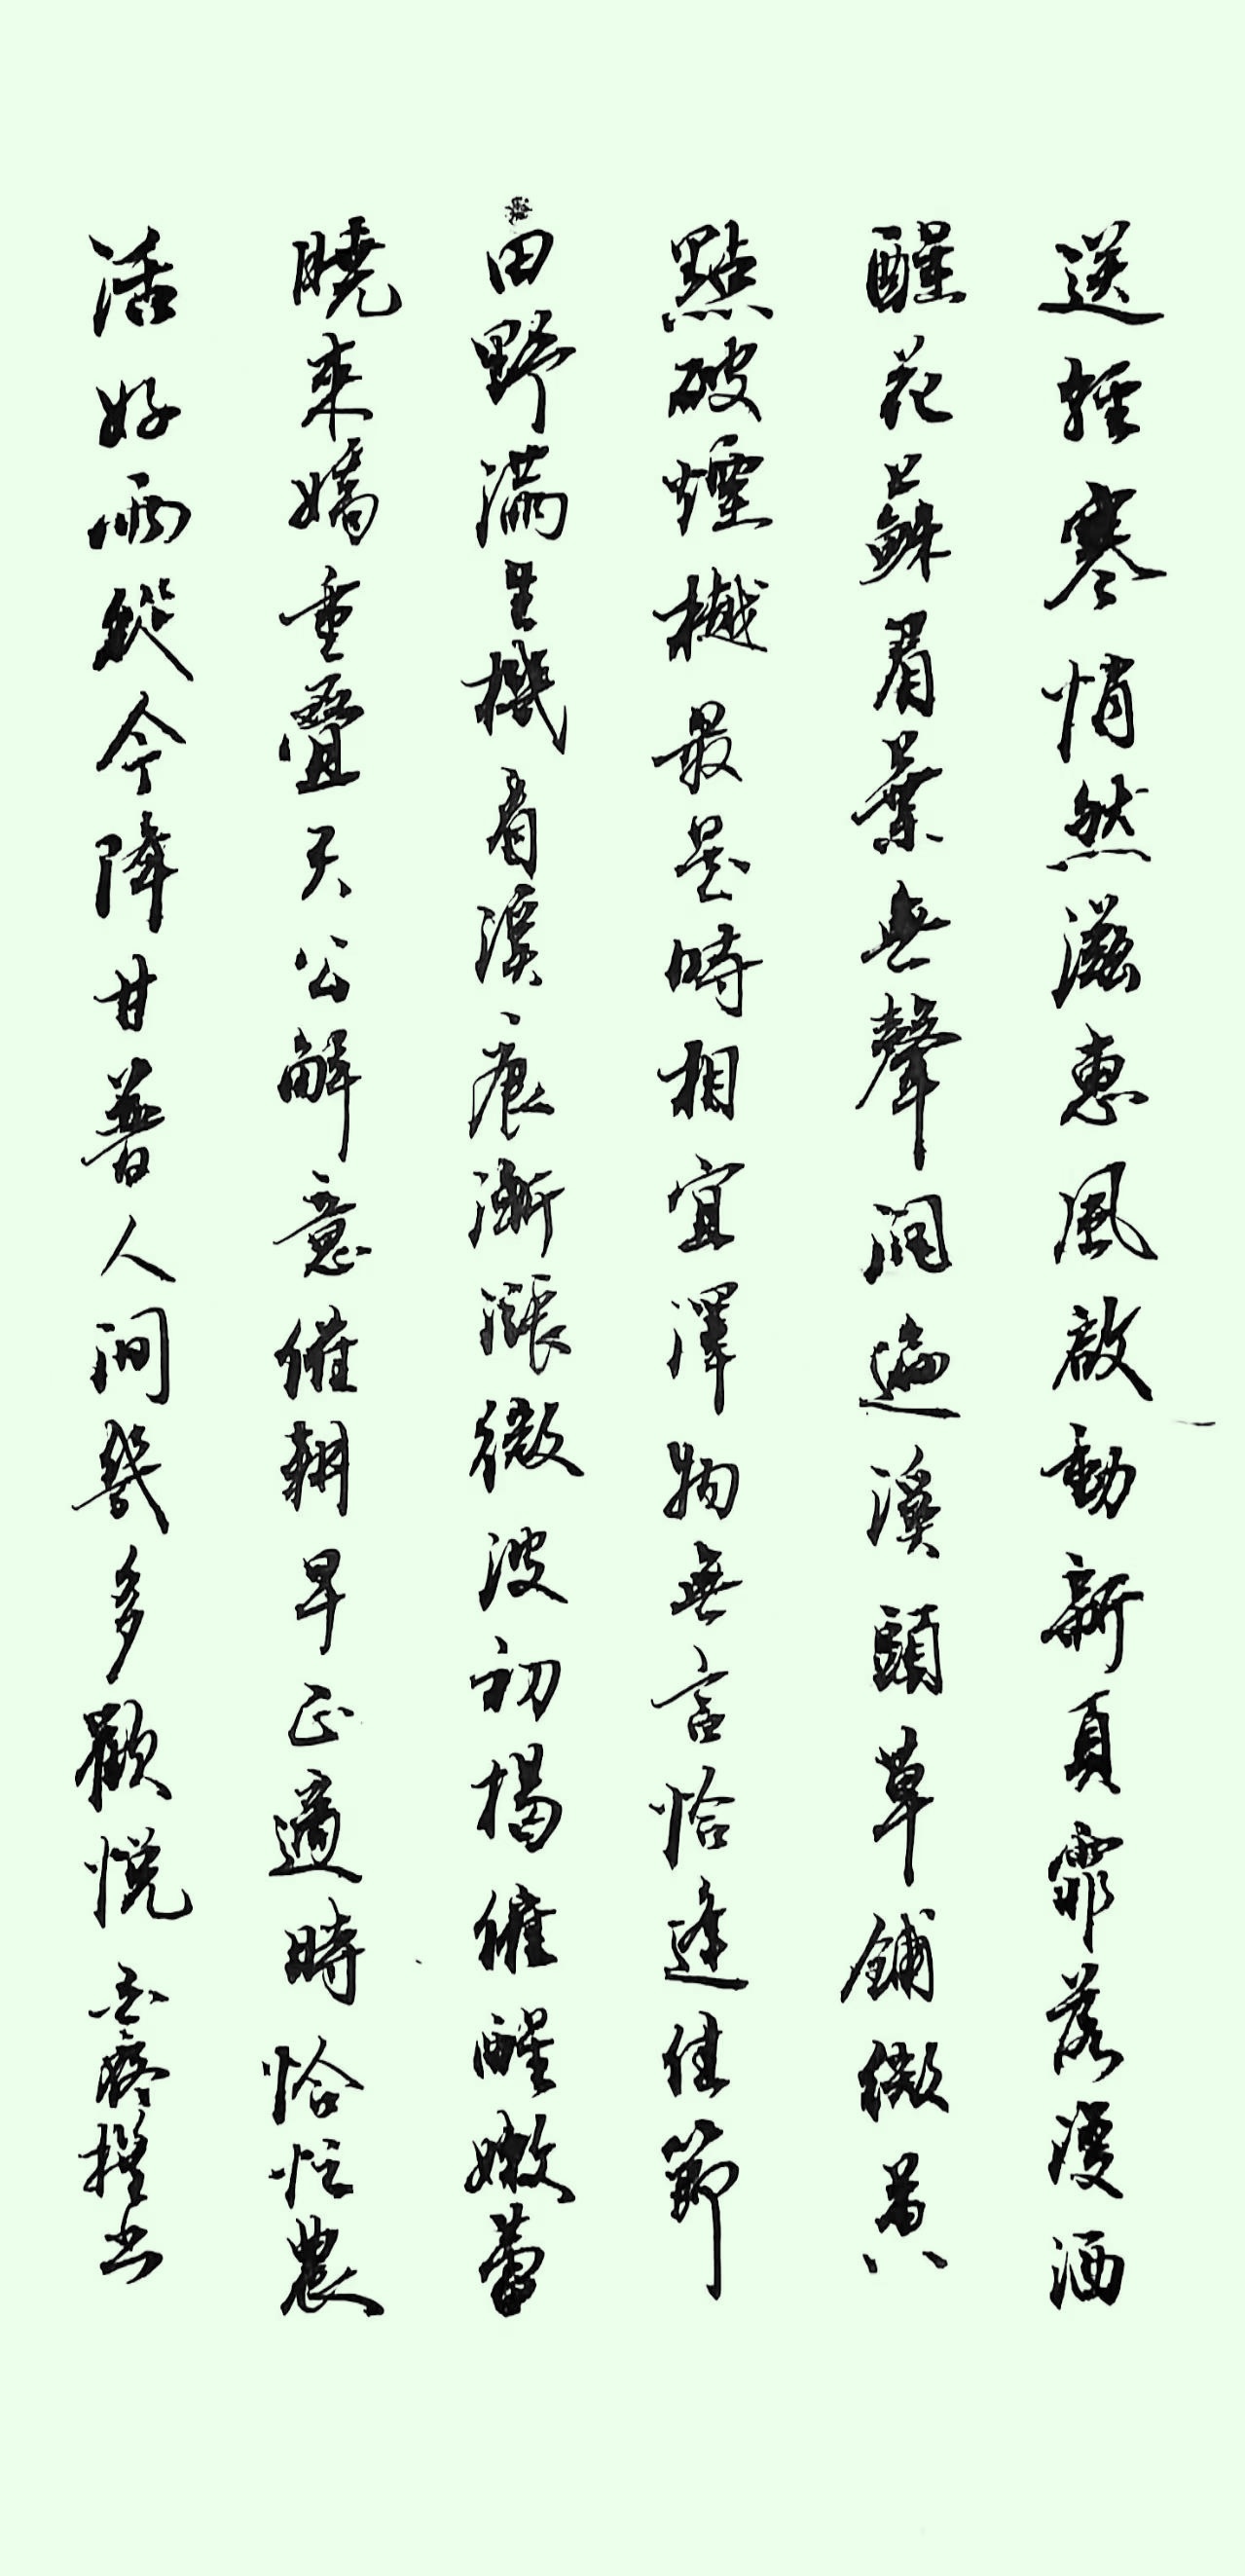 送輕寒悄然滋惠風啟動新頁霏落漫洒
醒花蘇眉葉無聲潤遍溪頭草鋪微黃
點破煙樾最是時相宜澤物無言恰逢佳節
田野滿生機看溪痕漸漲微波初揭催醒嫩蕾
曉來嬌重疊天公解意催耕早正適時恰忙農
活好雨縱今降甘普人間幾多歡悅 撰书